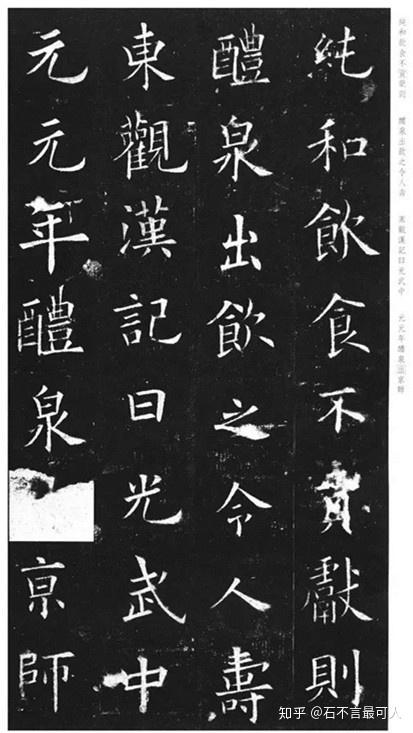 純和飲食不貢獻則
醴泉出飲之令人壽
東觀漢記曰光武中
元元年醴泉
亰師
純和飲食不貢獻則 醴泉出飲之令人壽 東觀漢記曰光武中 元元年醴泉出京師
知乎 @石不言最可人